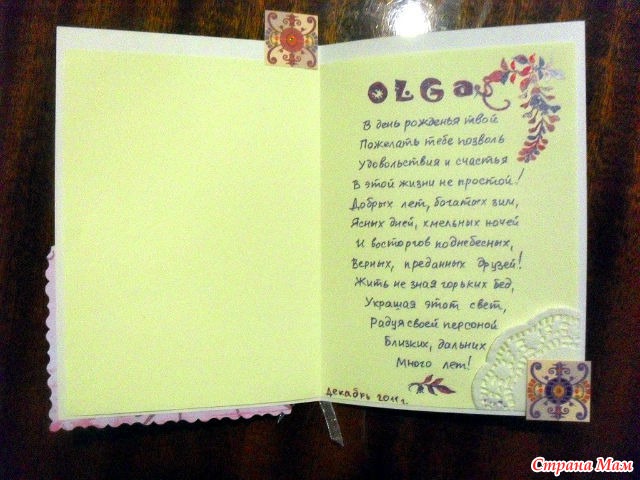 OLGA
В день рожденья твой
Пожелать тебе позволь
Удовольствия и счастья
В этой жизни не простой!
Добрых лет, богатых зим,
Ясных дней, хмельных ночей
И восторгов поднебесных,
Верных, преданных друзей!
Жить не зная горьких бед,
Украшая этот свет,
Радуя своей персоной
Близких, дальних
Много лет!
Декабрь 2011г.
Страна Мам